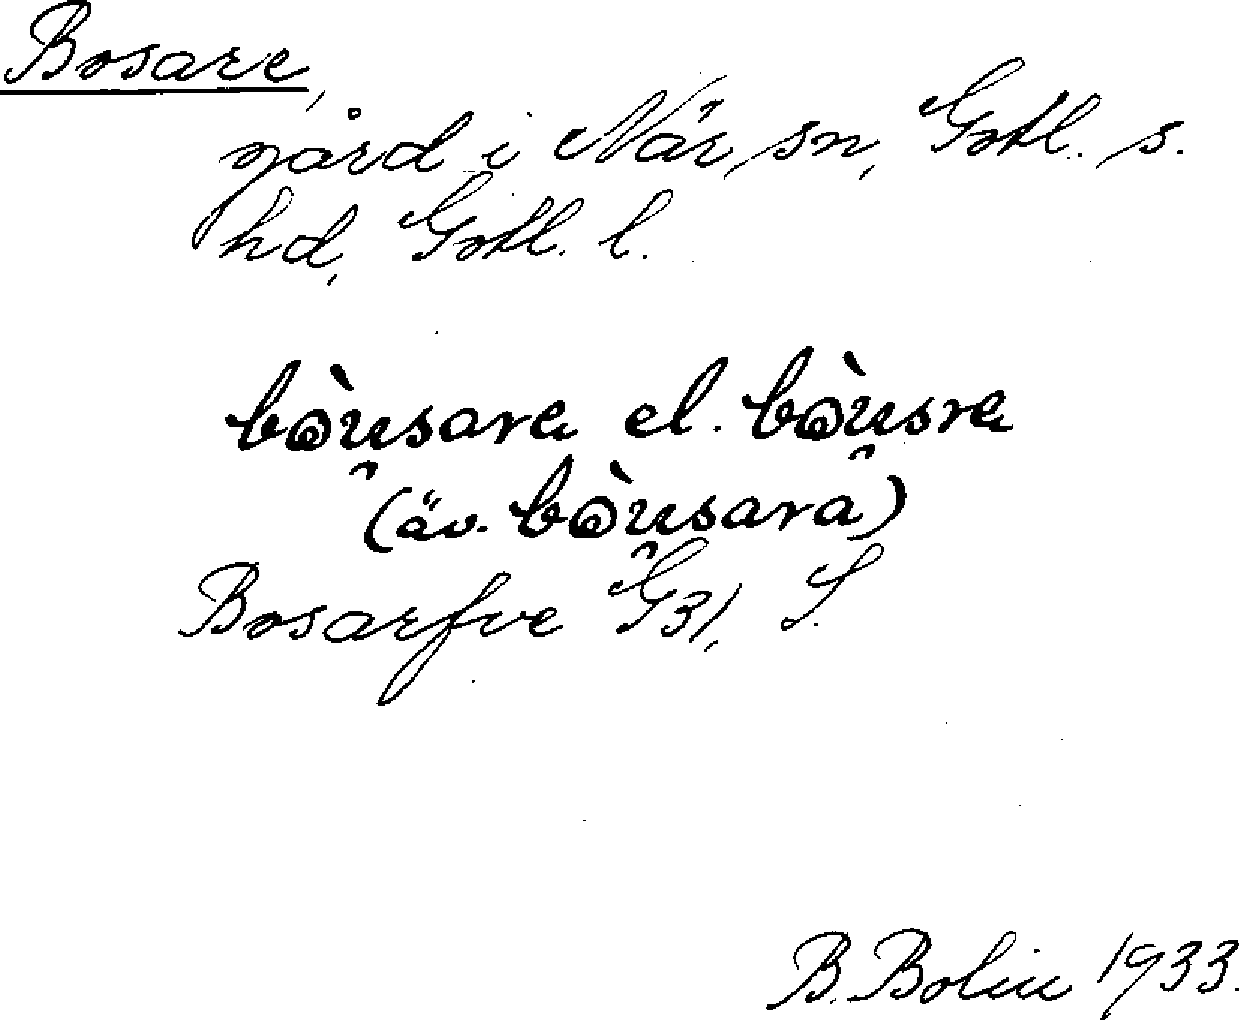 Bosare,
gård i När sn, Gotl. s.
hd, Gotl. l.
bòusare el. bòusre
(äv. bòusara)
Bosarfve G31, S.
B. Bolin 1933.